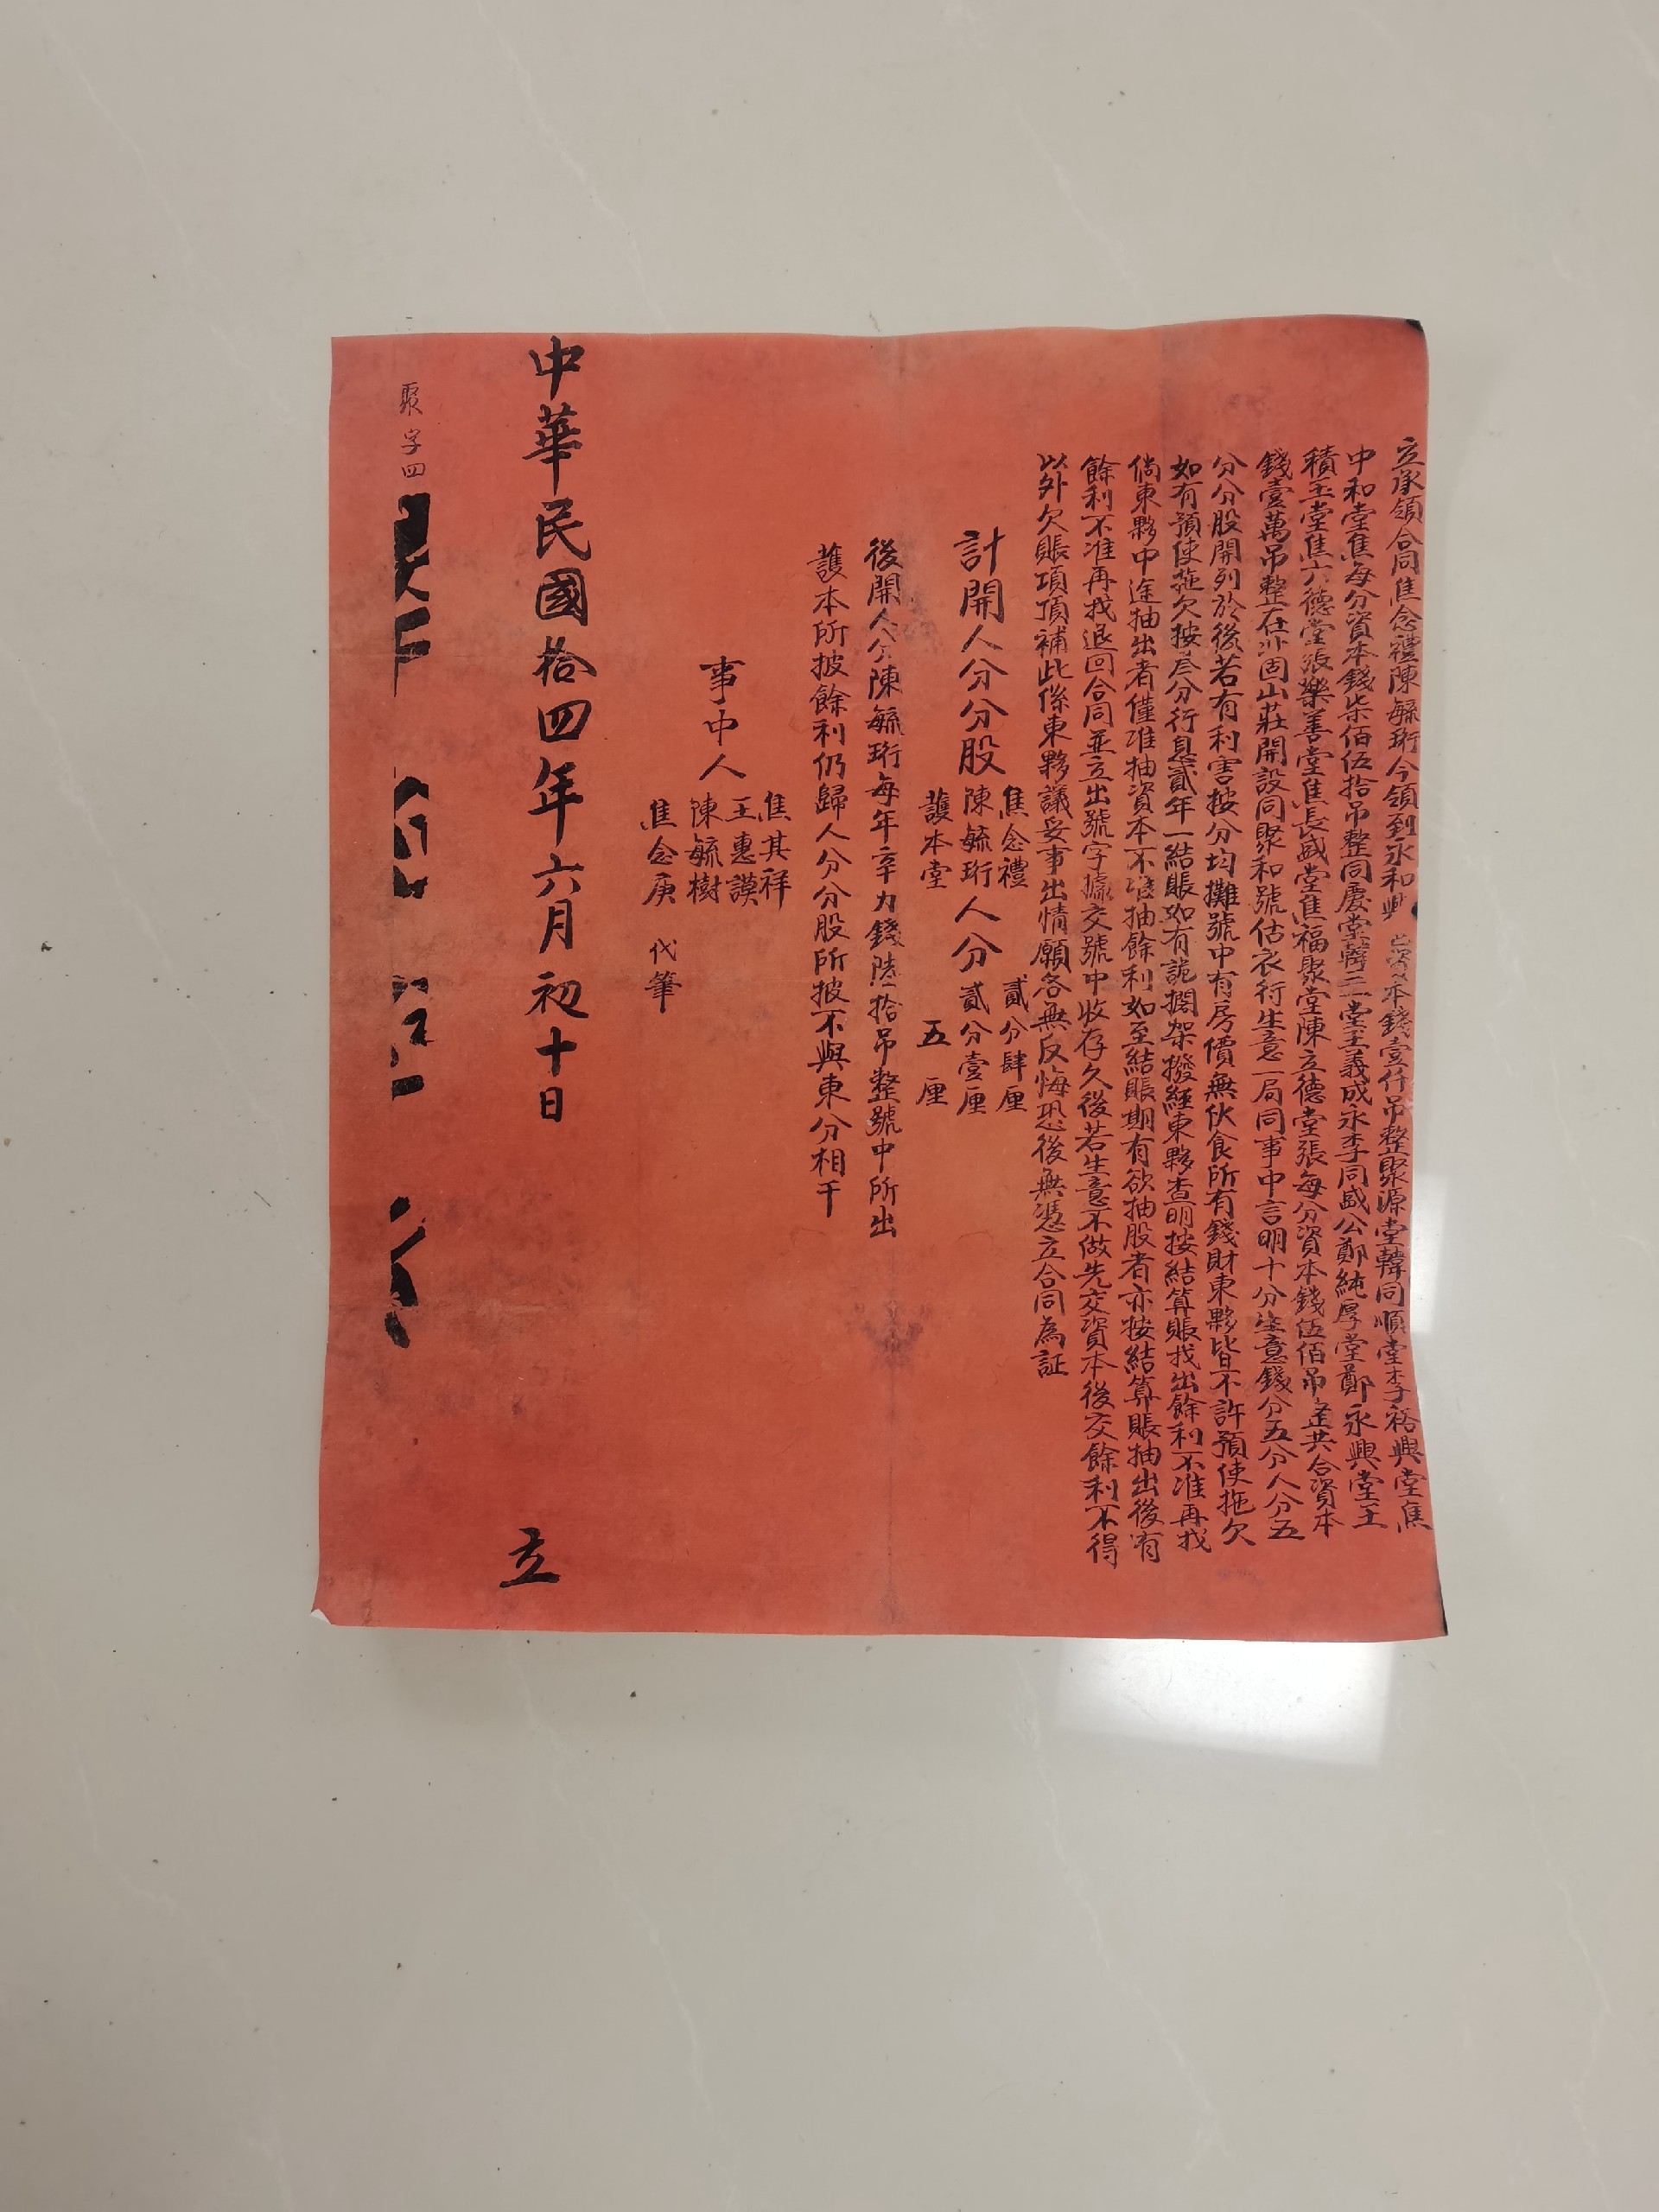 立承領合同焦念禮陳毓珩今領到永和興 本錢壹仟吊整聚源堂韓同順堂李裕興堂焦
中和堂焦每分資本錢柒佰伍拾吊整同慶堂韓三一堂王義成永李同盛公鄭純厚堂鄭永興堂王
積玉堂焦六德堂張樂善堂焦長盛堂焦福聚堂陳立德堂張每分資本錢伍佰吊整共合資本
錢壹萬吊整在沙固山莊開設同聚和號估衣行生意一局同事中言明十分生意錢分五分人分五
分分股開列於後若有利害按分均攤號中有房價無伙食所有錢財東夥皆不許預使拖欠
如有預使拖欠按叁分行息貳年一結賬如有詭擱架撥經東夥查明按結算賬找出餘利不准再找
倘東夥中途抽出者僅准抽資本不准抽餘利如至結賬期有欲抽股者亦按結算賬抽出後有
餘利不准再找退回合同並立出號字據交號中收存久後若生意不做先交資本後交餘利不得
以外欠賬項頂補此係東夥議妥事出情願各無反悔恐後無憑立合同為証
計開人分分股
焦念禮 貳分肆厘
陳毓珩人分貳分壹厘
護本堂 五厘
後開人分陳毓珩每年辛力錢陸拾吊整號中所出
護本所披餘利仍歸人分分股所披不與東分相干
事中人
焦其祥
王惠謨
陳毓樹
焦念庚 代筆
中華民國拾四年六月初十日 立
聚字四